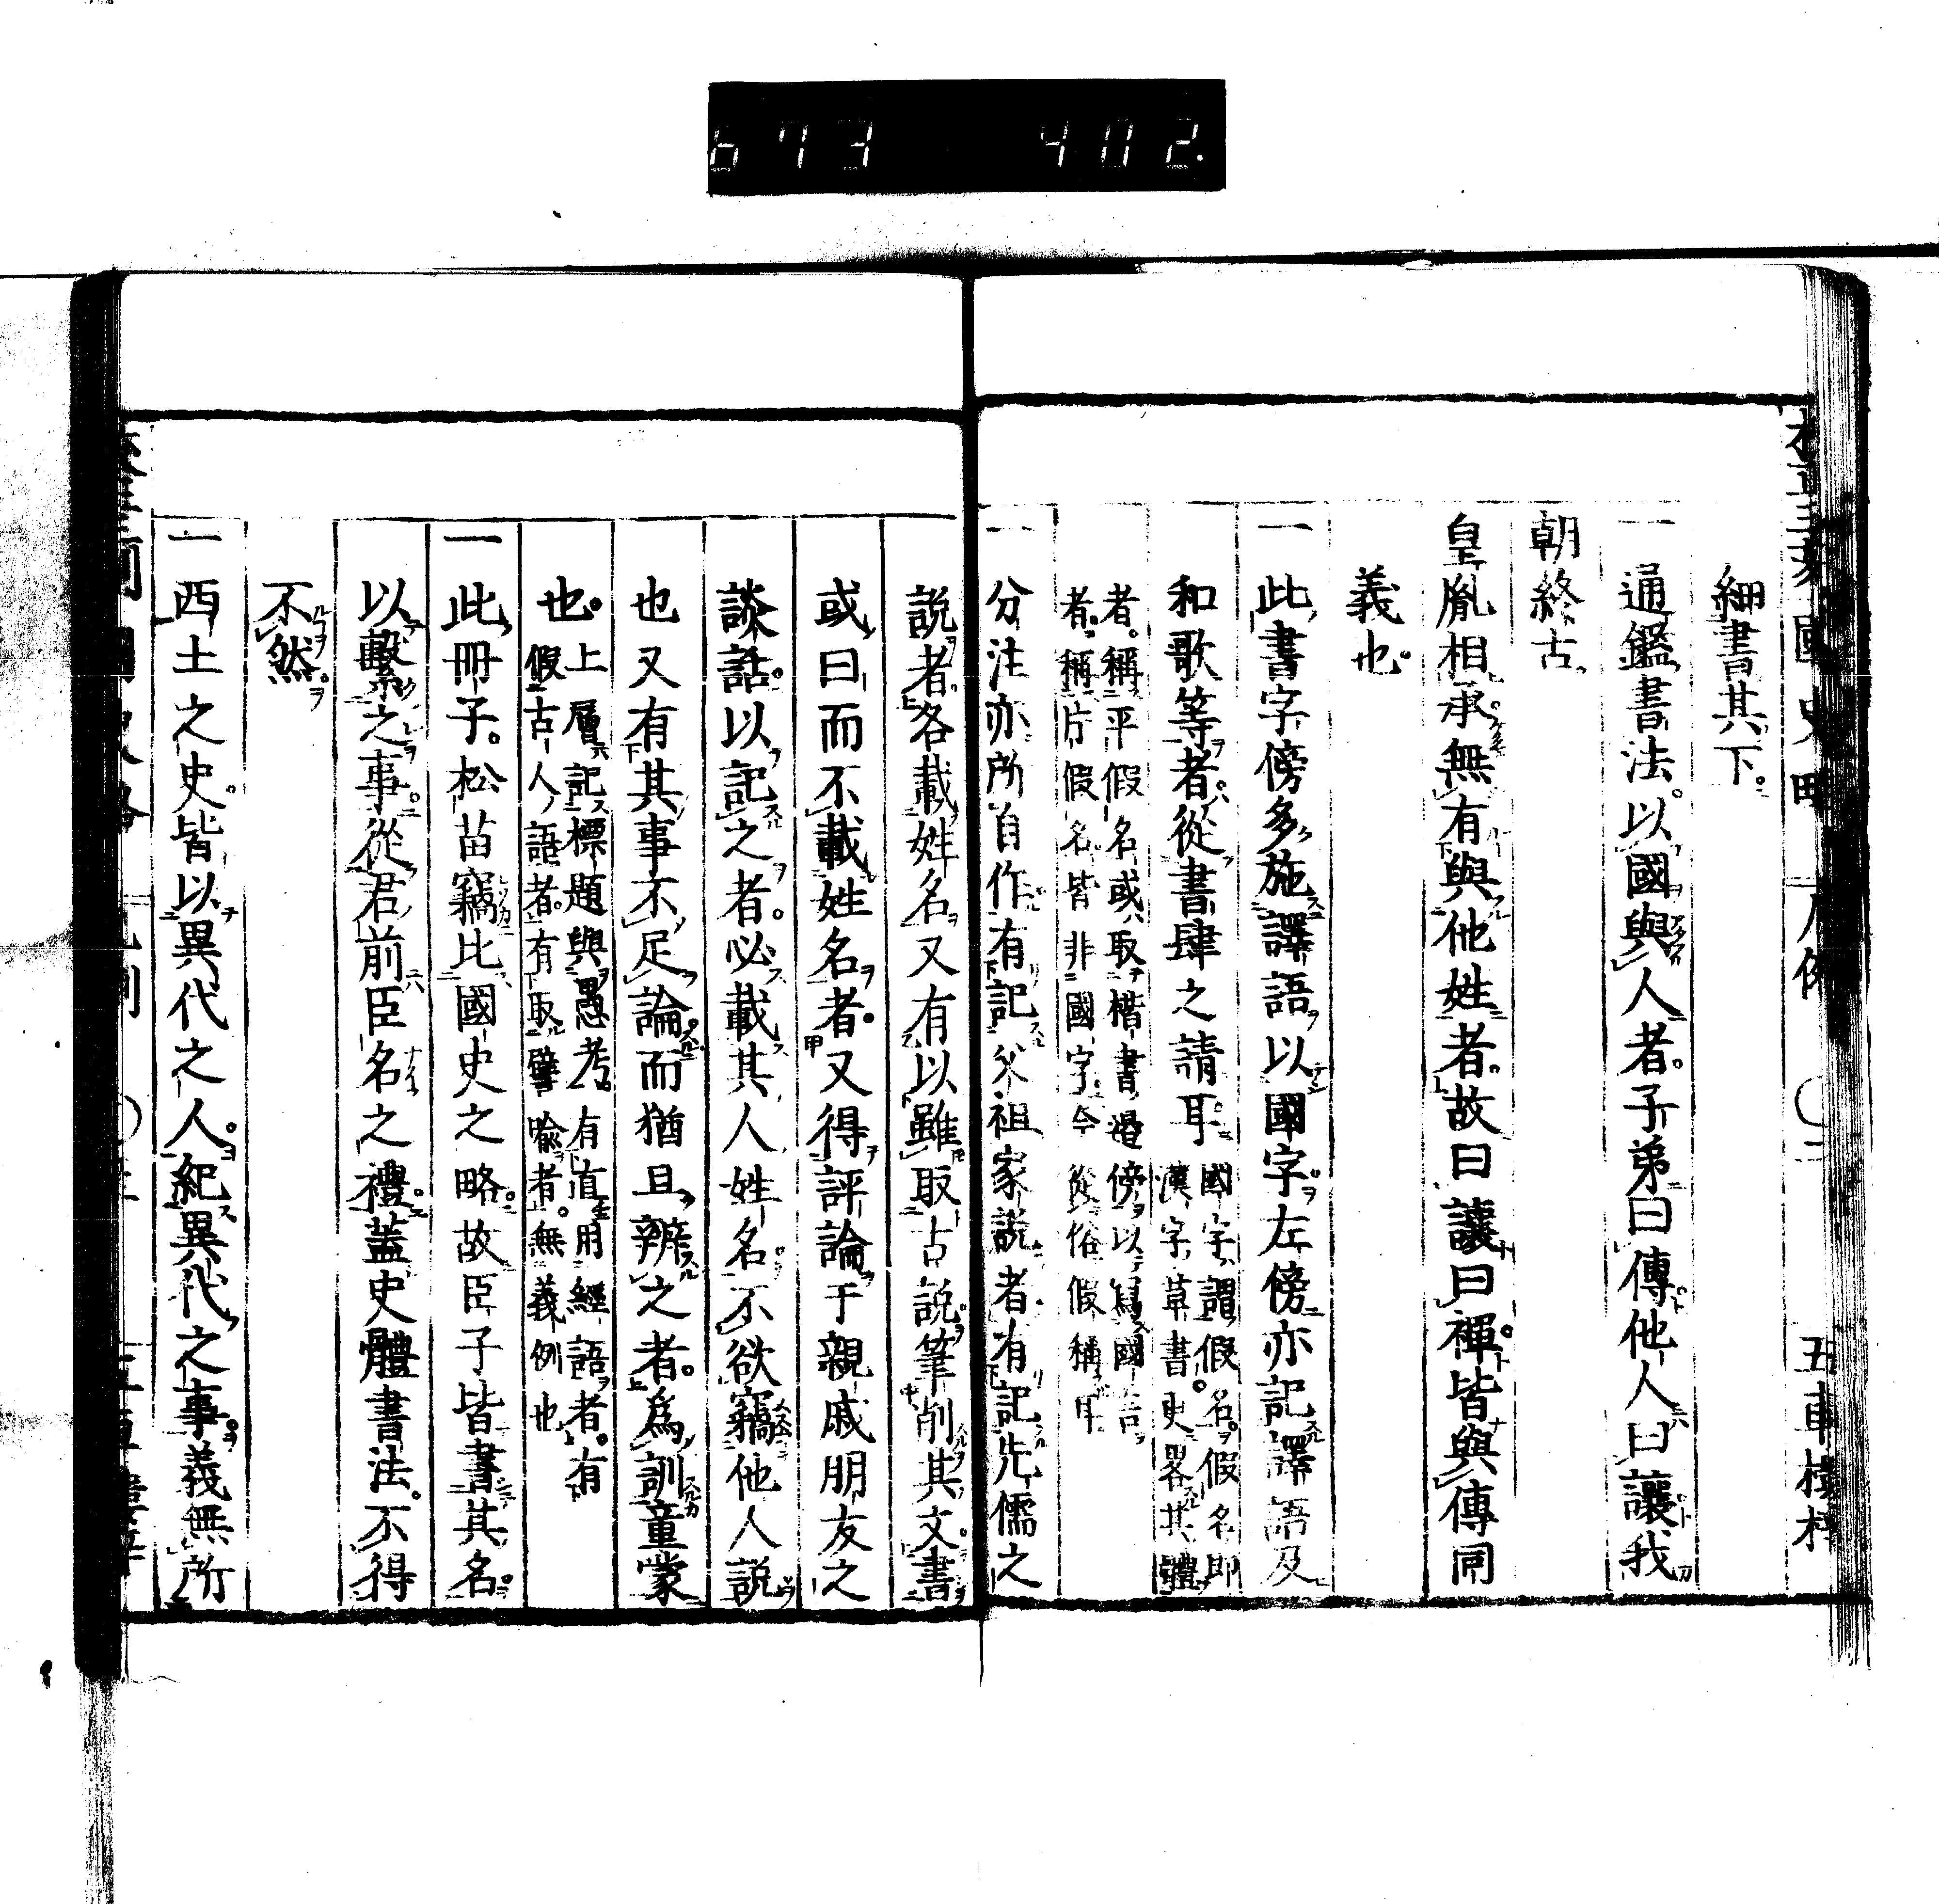 673 402.
細書其下。
一 通鑑書法。以國與人者。子弟曰傳他人曰讓我
朝終古
皇胤相承無有與他姓者。故曰讓曰禪。皆與傳同
義也。
一 此書字傍多施譯語以國字。左傍亦記譯語及
和歌等者。從書肆之請耳
國字謂假名。假名即
漢字草書。史畧其體
者。稱平假名或取楷書邊傍以寫國言
者。稱片假名皆非國字。今從俗假稱耳
一 分注亦所自作有記父祖家説者有記先儒之
説者。各載姓名又有以雖取古説。筆削其文。書
或曰而不載姓名者。又得評論于親戚朋友之
談話。以記之者。必載其人姓名。不欲竊他人説
也又有其事不足論。而猶且辨之者。爲訓童蒙
也。
上層記標題與愚考。有直用經語者。有
假古人語者。有取譬喩者。無義例也
一 此冊子。松苗竊比國史之略。故臣子皆書其名。
以繫之事。從君前臣名之禮。蓋史體書法。不得
不然。
一 西土之史。皆以異代之人。紀異代之事。義無所